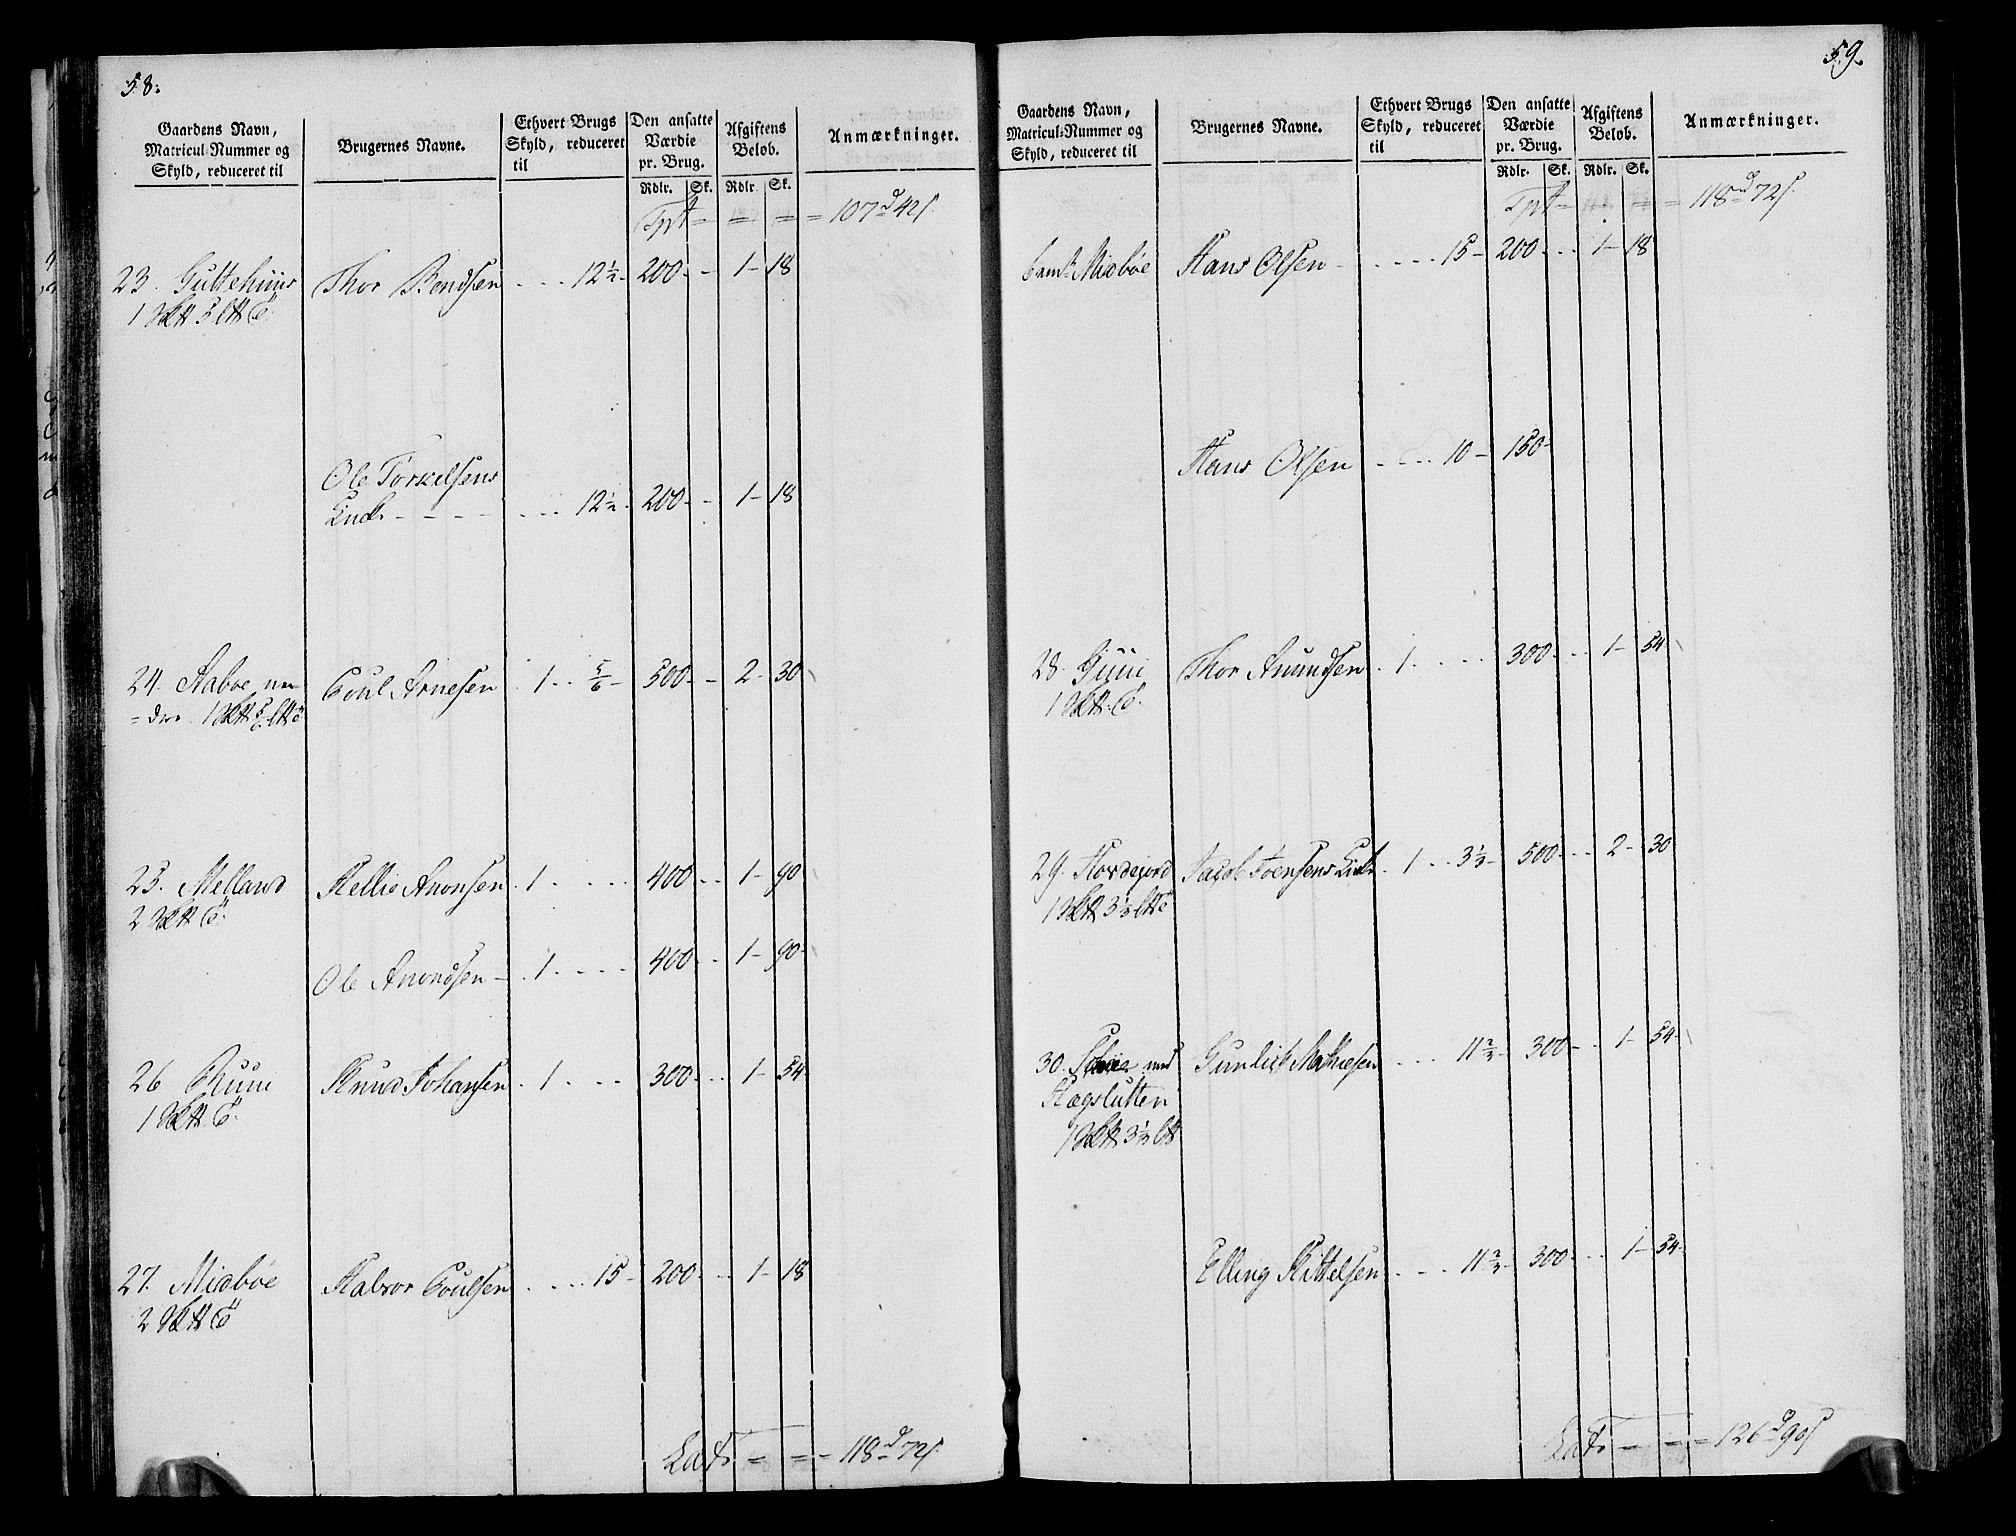 58.
Gaardens Navn, Matricul-Nummer og Skyld, reduceret til
Brugernes Navne.
Ethvert Brugs Skyld, reduceret til
Den ansatte Værdie pr. Brug.
Afgiftens Beløb.
Anmærkninger.
Rdlr. Sk. Rdlr. Sk.
Tpt = = = = 107 d 42 s.
23. Guttehuus Thor Bendsen . . . 12½ - 200 - - 1 - 18
Ole Torkelsens
Enke - - - - . . . 12½ - 200 - - 1 - 18
24. Aaboe ne= Poul Arnesen . 1 . . 5/6 - 500 - - 2 - 30
= dre
25. Melland Kellie Anonsen . 1 . . . . 400 - - 1 - 90
Ole Anondsen - . 1 . . . . 400 - - 1 - 90 -
26 Ruue Knud Johansen . 1 . . . 300 - - 1 - 54 -
27. Midbøe Halvor Poulsen . . . 15 - 200 - - 1 - 18
Lats = = - 118 d 72 s.
59.
Gaardens Navn, Matricul-Nummer og Skyld, reduceret til
Brugernes Navne.
Ethvert Brugs Skyld, reduceret til
Den ansatte Værdie pr. Brug.
Afgiftens Beløb.
Anmærkninger.
Rdlr. Sk. Rdlr. Sk.
Tpt = = = 118 d 72 s.
Midbøe Hans Olsen - . . . . 15 - 200 - - 1 - 18
Hans Olsen . . . . 10 - 150 -
28. Thor Amundsen . 1 . . . . 300 - - 1 - 54
29. Hovdejord Jacob Joensens Enke . 1 . . 3⅓ - 500 - - 2 - 30
30. med Gunlick Mathiesen . . . 11⅔ - 300 - - 1 - 54 -
Hægslutten
Elling Kittelsen . . . 11⅔ - 300 - - 1 - 54 -
Lats = = = 126 d 90 s